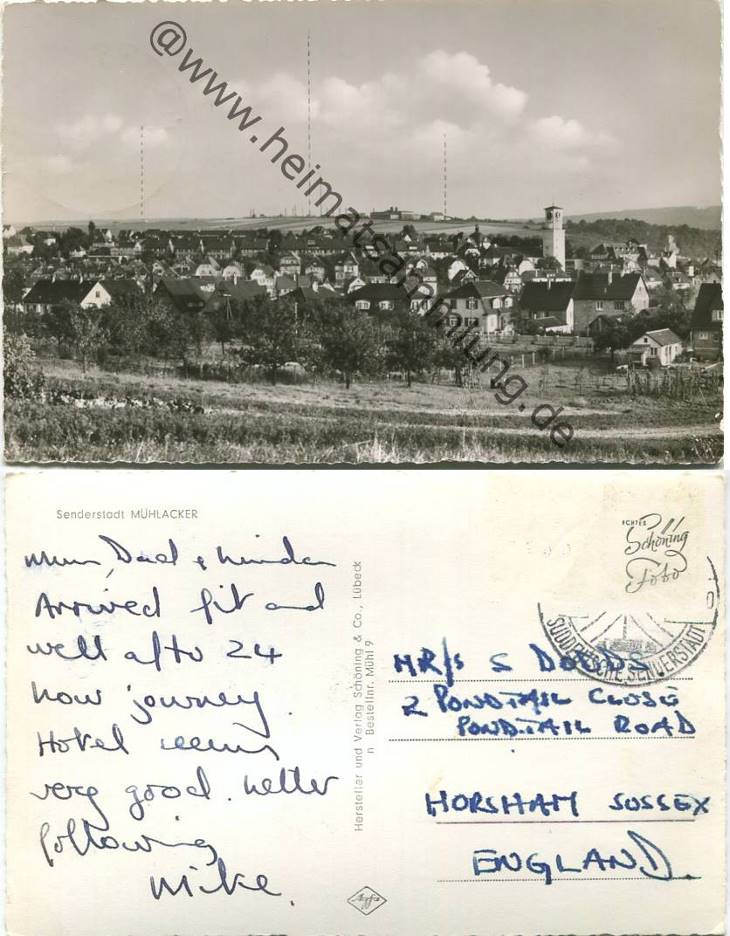 @www.heimatsammlung.de
Senderstadt MÜHLACKER
Mum, Dad &
Arrived fit and
well afte 24
hour journey.
Hotel seems
very good. Letter
following
Mike.
Hersteller und Verlag Schöning & Co., Lübeck
n Bestellnr. Mühl 9
ECHTES
Schöning
Foto
SÜDDEUTSCHE SENDERSTADT
MR/S S DODDS
2 PONDTAIL CLOSE
PONDTAIL ROAD
HORSHAM SUSSEX
ENGLAND.
Agfa